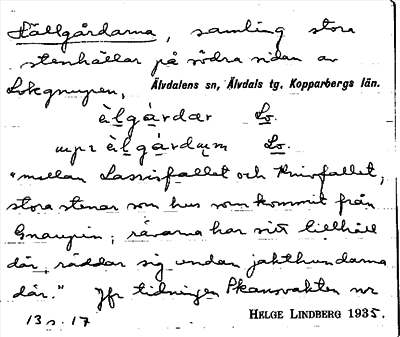 Hällgårdarna, samling stora
stenhällar på södra sidan av
Lokgnupen, Älvdalens sn, Älvdals tg. Kopparbergs län.
èlgárdar Lo.
upr èlgárdum Lo.
"mellan Lassisfallet och Knivfallet,
stora stenar som hus som kommit från
Gnaupin; rävarna har sitt tillhåll
där, räddar sig undan jakthundarna
där." Jfr tidningen Skansvakten nr
13 s. 17 HELGE LINDBERG 1935.